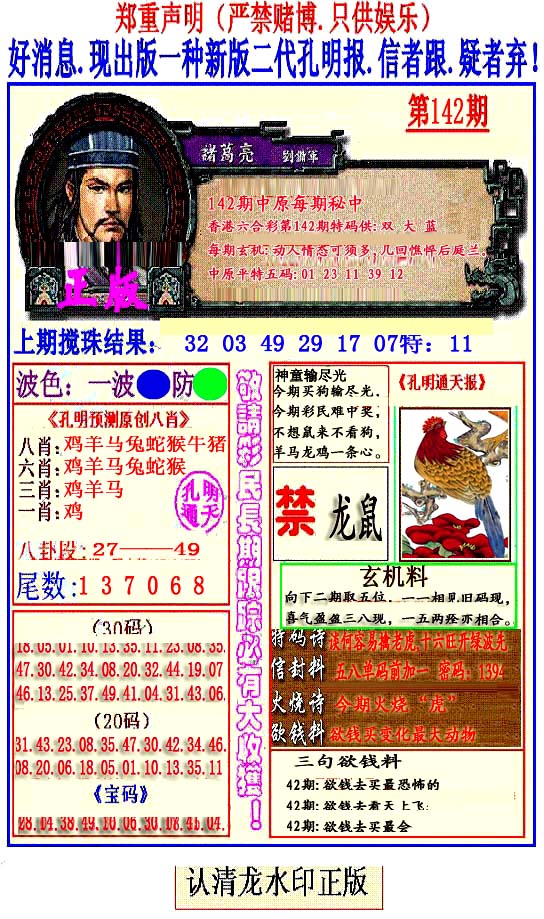 郑重声明（严禁赌博.只供娱乐）
好消息.现出版一种新版二代孔明报.信者跟.疑者弃!
第142期
諸葛亮 劉備軍
142期中原每期秘中
香港六合彩第142期特码供: 双 大 蓝
每期玄机: 动人情态可须多, 几回憔悴后庭兰。
中原平特五码: 01 23 11 39 12
正版
上期搅珠结果: 32 03 49 29 17 07特: 11
波色: 一波 防
《孔明预测原创八肖》
八肖: 鸡羊马兔蛇猴牛猪
六肖: 鸡羊马兔蛇猴
三肖: 鸡羊马
一肖: 鸡
孔明通天
八卦段: 27———49
尾数: 1 3 7 0 6 8
(30码)
18.05.01.10.13.35.11.23.08.35.
47.30.42.34.08.20.32.44.19.07
46.13.25.37.49.41.04.31.43.06.
(20码)
31.43.23.08.35.47.30.42.34.46.
08.20.06.18.05.01.10.13.35.11
《宝码》
敬請彩民長期跟踪必有大收獲！
神童输尽光
今期买狗输尽光.
今期彩民难中奖,
不想鼠来不看狗,
羊马龙鸡一条心。
《孔明通天报》
禁 龙鼠
玄机料
向下二期取五位, 一一相见旧码现,
喜气盈盈三八现, 一五两经亦相合。
特码诗 谈何容易擒老虎,十六旺开绿波先
信封料 五八单码前加一 密码: 1394
火烧诗 今期火烧“虎”
欲钱料 欲钱买变化最大动物
三句欲钱料
42期: 欲钱去买最恐怖的
42期: 欲钱去看天上飞:
42期: 欲钱去买最会
认清龙水印正版